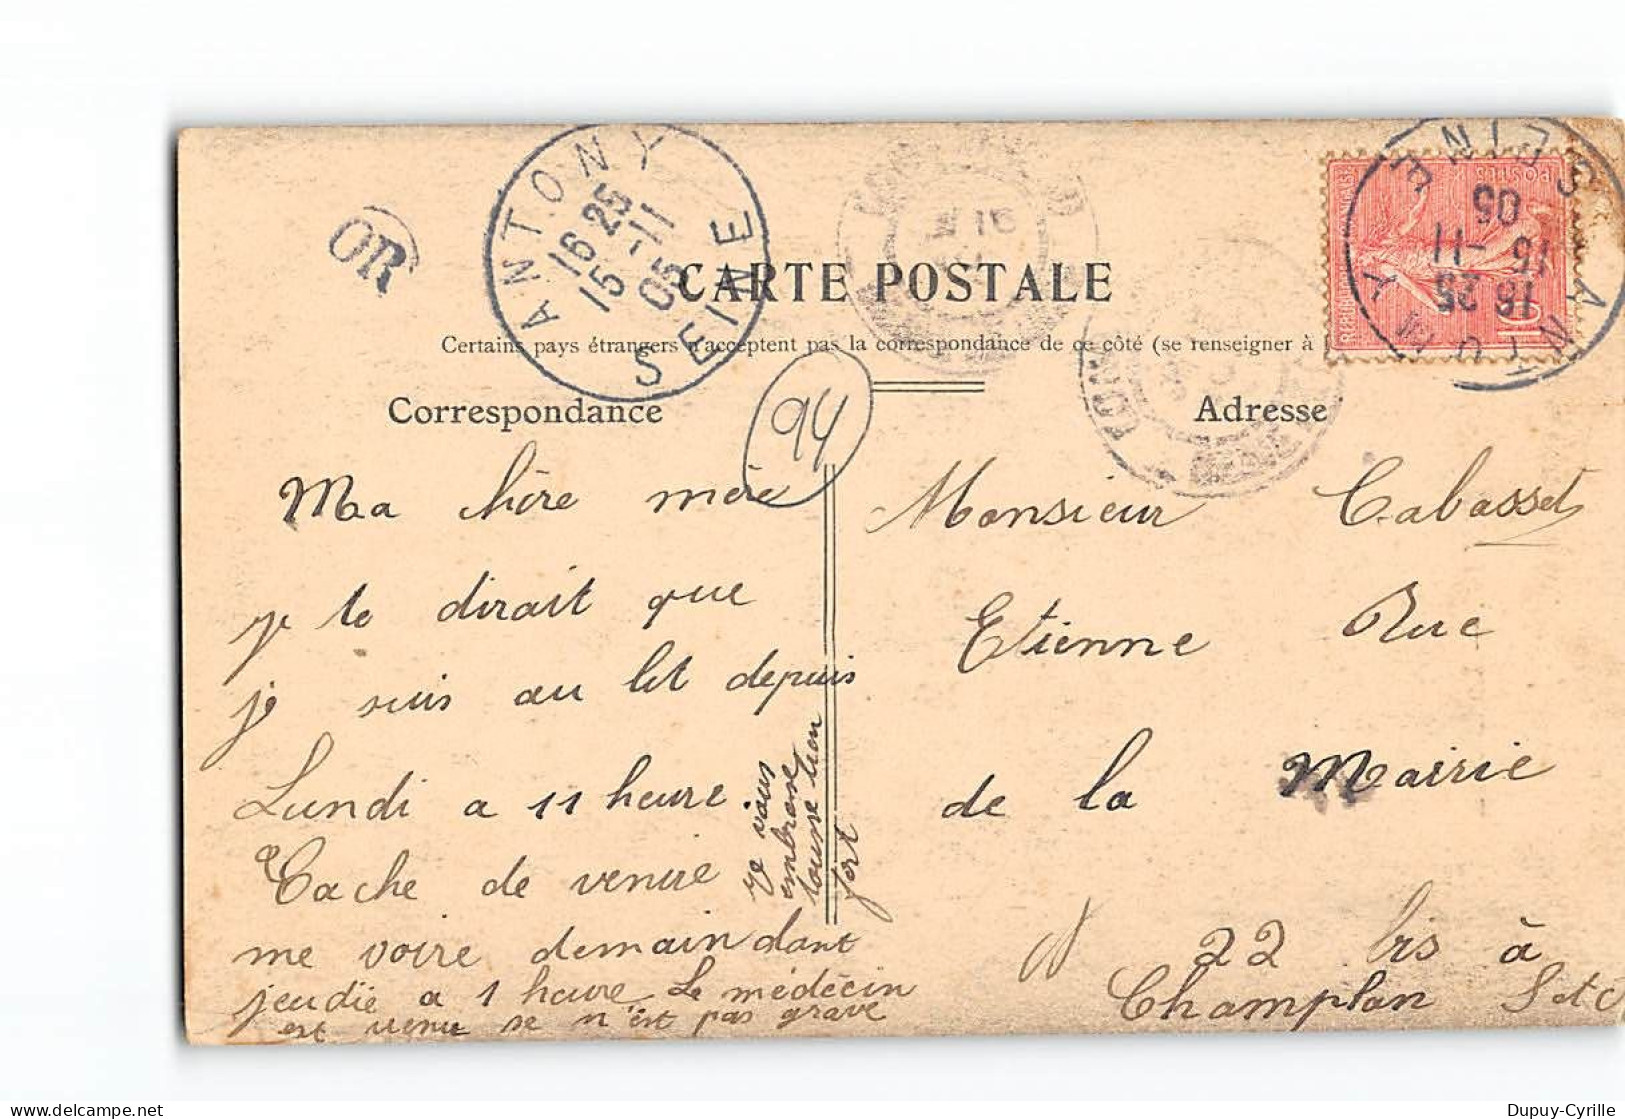 OR
ANTONY
16 25
15 -11
05
SEINE
SEINE
05
15 -11
16 25
ANTONY
POSTES
10
CARTE POSTALE
Certains pays étrangers n'acceptent pas la correspondance de ce côté (se renseigner à
Correspondance
94
Adresse
Ma chère mère
je te dirait que
je suis au lit depuis
Lundi a 11 heure
Tache de venire
me voire demain dant
jeudie a 1 heure Le médécin
est venu se n'est pas grave
Je vous
embrasse
tousse bien
fort
Monsieur Cabasset
Etienne Rue
de la Mairie
N 22 bis à
Champlan S et O
Dupuy-Cyrille